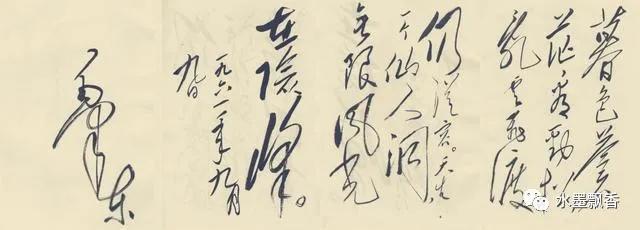 暮色蒼
茫看勁松
乱云飛渡
仍從容。天生
一个仙人洞
无限風光
在險峰。
一九六一年九月
九日
毛泽东
水墨飘香